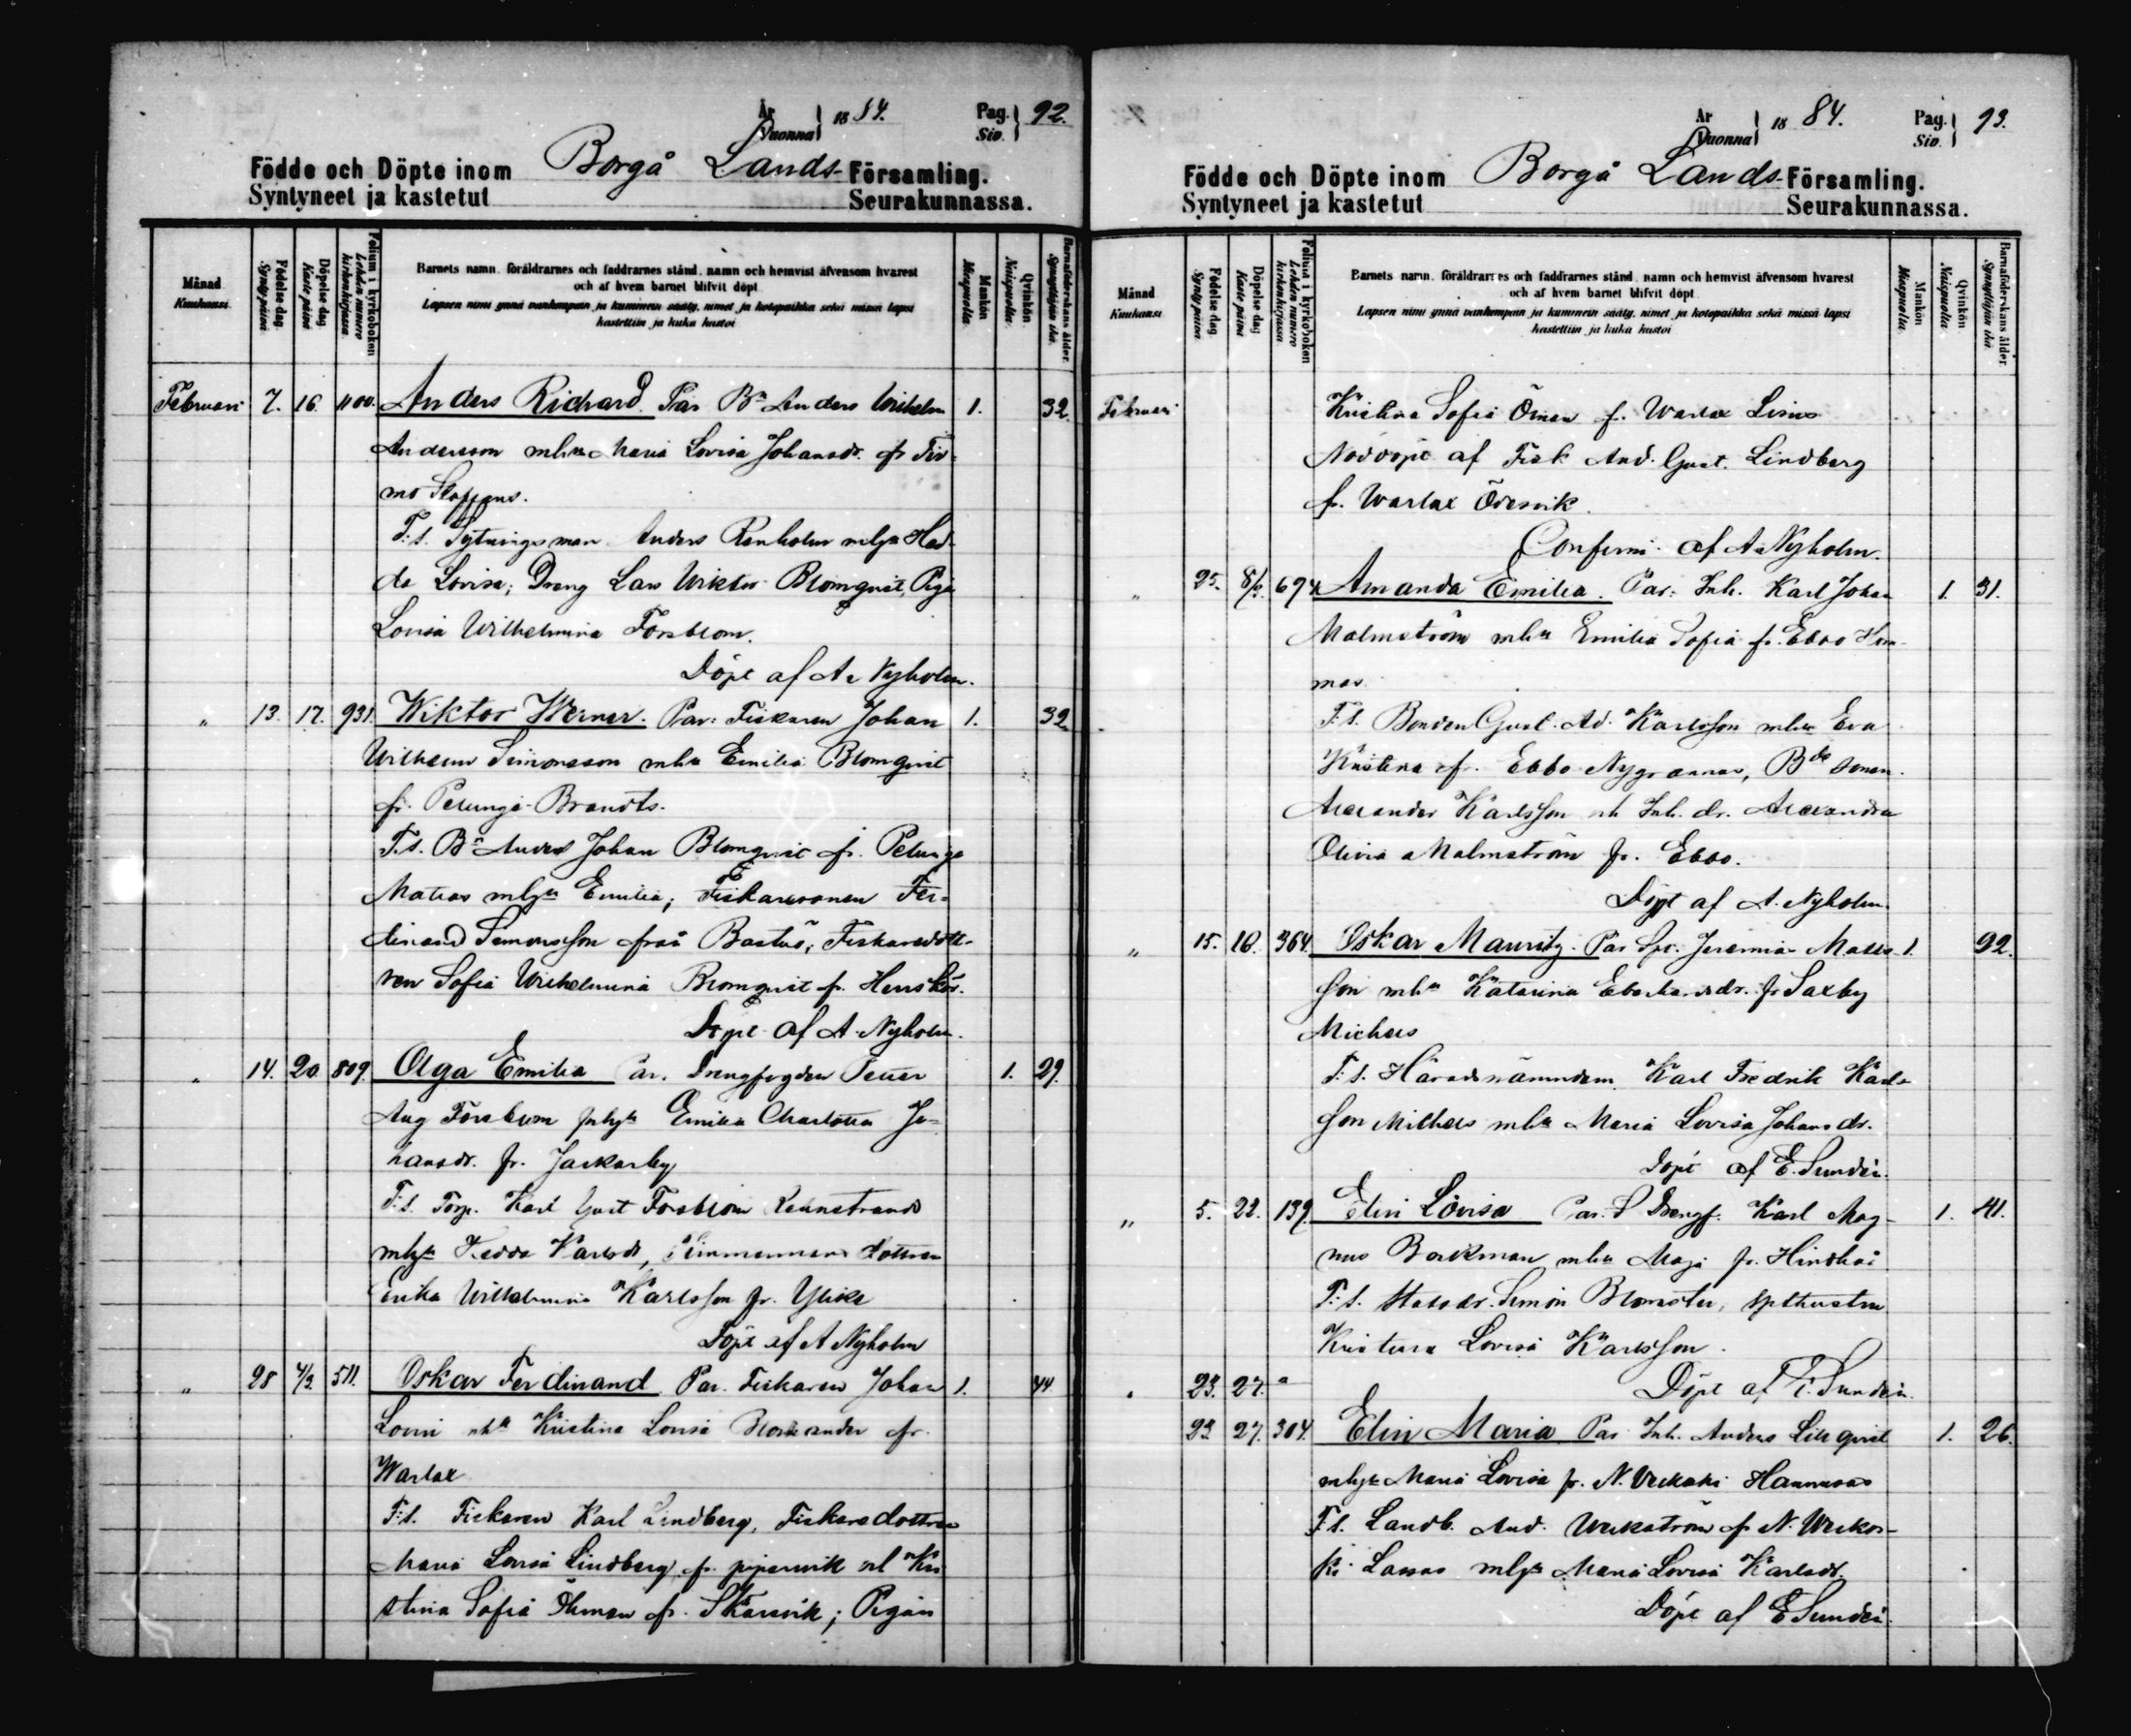 År
Vuonna } 18 84.
Pag.
Siv. } 92.
Födde och Döpte inom Borgå Lands- Församling.
Syntyneet ja kastetut Seurakunnassa.
Månad
Kuukausi.
Födelse dag.
Synty päivä.
Döpelse dag.
Kaste päivä.
Folium i kyrkoboken
Lehden numero kirkonkirjassa.
Barnets namn, föräldrarnes och faddrarnes stånd, namn och hemvist äfvensom hvarest
och af hvem barnet blifvit döpt
Lapsen nimi ynnä vanhempain ja kummein sääty, nimet ja kotopaikka sekä missä lapsi
kastettiin ja kuka kastoi
Mankön
Miespuolia.
Qvinkön
Naispuolia.
Barnaföderskans ålder.
Synnyttäjän ikä.
Februari 7. 16. 1100. Anders Richard. Par. Bn Anders Wilhelm 1. 32.
Andersson mh Maria Lovisa Johansdr. fr
mo Staffans.
F:s. Sytningsman Anders Renholm mh Hed-
da Lovisa; Dreng Lars Wiktor Blomqvist, Piga
Lovisa Wilhelmina Forsblom.
Döpt af A. Nyholm.
" 13. 17. 931. Wiktor Werner. Par: Fiskaren Johan 1. 32
Wilhelm Simonsson mh Emilia Blomqvist
fr. Pellinge Brandts.
F.s. Bn Anders Johan Blomqvist fr. Pellinge
Matsas mh Emilia; Fiskaresonen Fer-
dinand Simonsson från Bastuö, Fiskaredott-
ren Sofia Wilhelmina Blomqvist fr.
Döpt af A. Nyholm.
" 14. 20. 809. Olga Emilia Par. Drengfogden Petter 1. 29.
Aug Forsblom mh Emilia Charlotta Jo-
hansdr. fr. Jackarby
F:s. Torp. Karl Gust Forsblom
mh Hedda Karlsdr, Timmermans dottren
Erika Wilhelmina Karlsson fr.
Döpt af A Nyholm
" 28 4/3. 511. Oskar Ferdinand Par. Fiskaren Johan 1. 44
mh Kristina Lovisa fr.
Warlax
F:s. Fiskaren Karl Lindberg, Fiskaredottren
Maria Lovisa Lindberg fr. pipersvik o Kri
stina Sofia Öhman fr. ; Pigan
År
Vuonna } 18 84.
Pag.
Siv. } 93.
Födde och Döpte inom Borgå Lands- Församling.
Syntyneet ja kastetut Seurakunnassa.
Månad
Kuukausi
Födelse dag.
Synty päivä.
Döpelse dag
Kaste päivä
Folium i kyrkoboken
Lehden numero kirkonkirjassa.
Barnets namn, föräldrarnes och faddrarnes stånd, namn och hemvist äfvensom hvarest
och af hvem barnet blifvit döpt
Lapsen nimi ynnä vanhempain ja kummein sääty, nimet ja kotopaikka sekä missä lapsi
kastettiin ja kuka kastoi
Mankön
Miespuolia.
Qvinkön
Naispuolia.
Barnaföderskans ålder.
Synnyttäjän ikä.
Februari Kristina Sofia Öman fr. Warlax
Nöddöpt af Fisk And. Gust. Lindberg
fr. Warlax Ödesvik.
Confirm. af A. Nyholm.
" 25. 8/3. 694 Amanda Emilia. Par: Inh. Karl Johan 1. 31.
Malmström mh Emilia Sofia fr. Ebbo Hom-
mas.
F.s. Bonden Gust. Ad. Karlsson mh Eva
Kristina fr. Ebbo Nygrannas, Bde sonen
Alexander Karlsson och Inh. dr. Alexandra
Olivia Malmström fr. Ebbo.
Döpt af A. Nyholm.
" 15. 18. 364. Oskar Mauritz. Par Jeremias Mats- 1. 92.
son mh Katarina fr Saxby
Michels
F.s. Häradsnämndem. Karl Fredrik Karls-
son Michels mh Maria Lovisa Johansdr.
Döpt af E. Sundén.
" 5. 22. 139. Elin Lovisa Par. S Drengf. Karl Mag- 1. 41.
nus Backman mh Maja fr. Hindhår
F:s. Simon Blomster,
Kristina Lovisa Karlsson.
" 23. 27. " Döpt af E. Sundén.
23. 27. 304. Elin Maria Par Inh. Anders Lillqvist 1. 26.
mh Maria Lovisa fr. N. Veckoski Hannusas
F.s. Landb. And. Weckström fr N. Weckos-
ki Lassas mh Maria Lovisa Karlsdr.
Döpt af E Sundén.